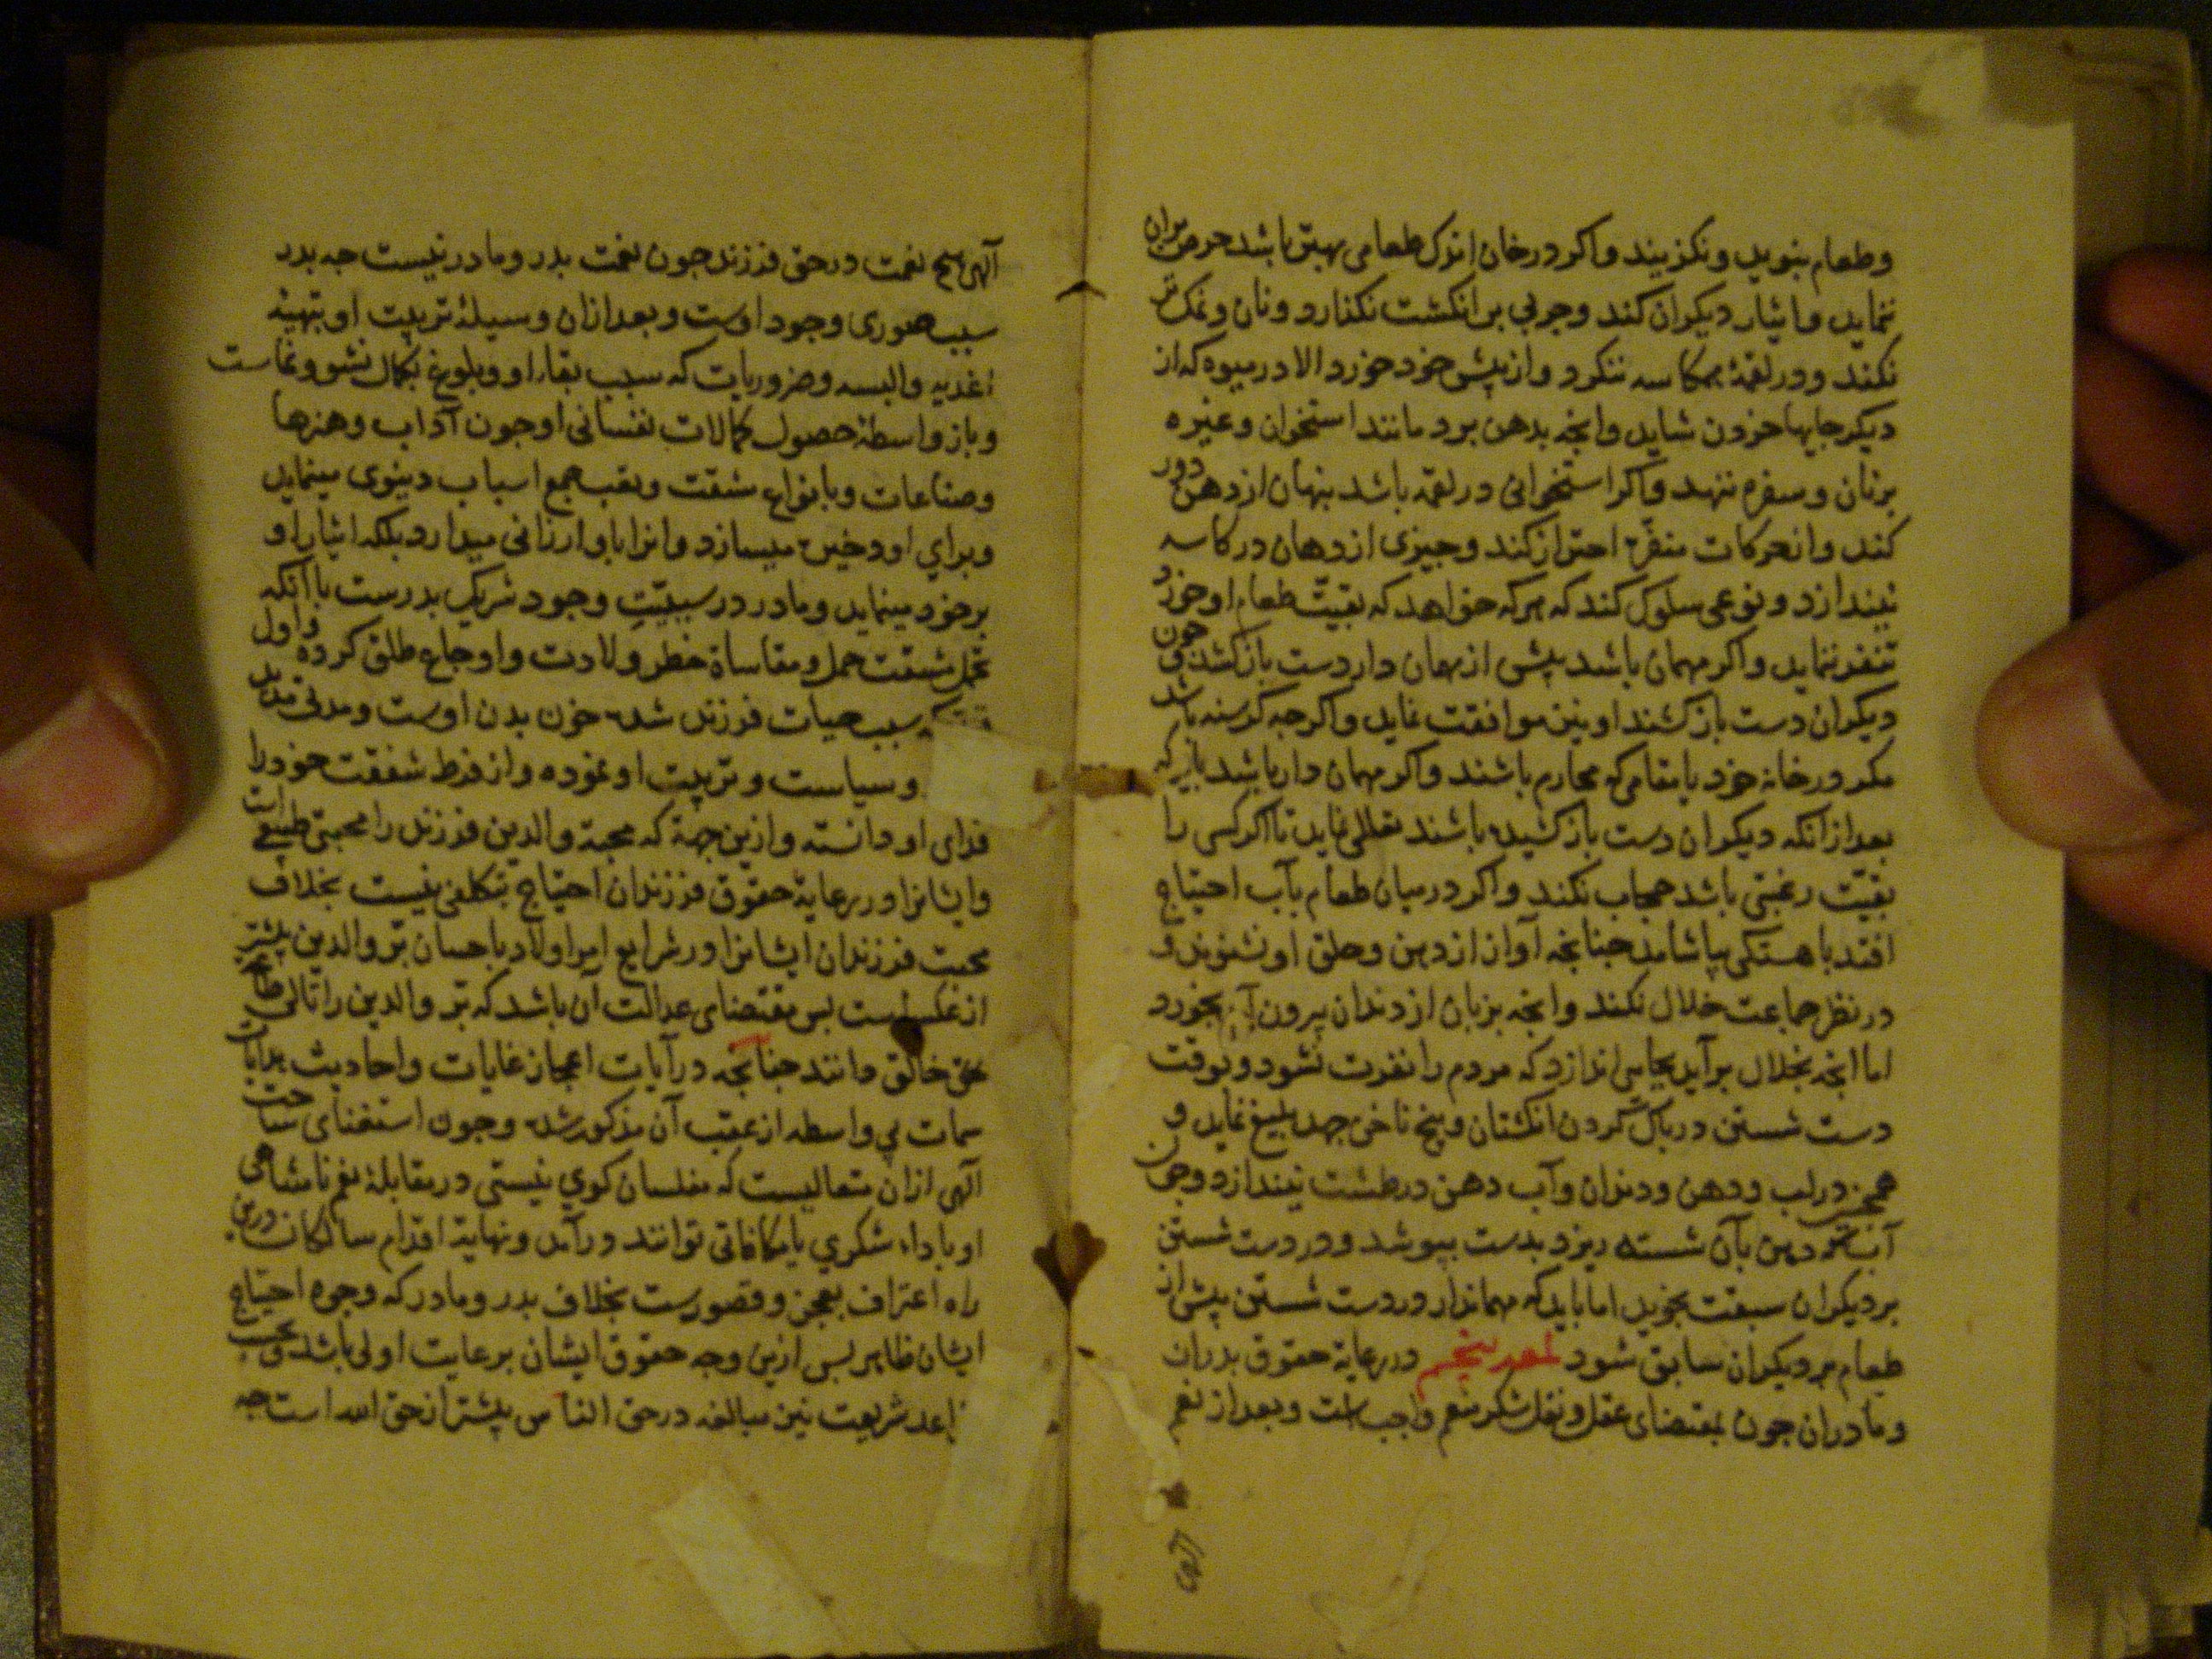 وطعام نبوید ونکزیند واکر در خان اندک طعامی بهتر باشد حرص بران
ننماید وایثار دیکران کند وچربی بر انکشت نکذارد ونان ونمک تر
نکند ودر لقمهٔ همکاسه ننکرد واز پیش خود خورد الا در میوه که از
دیکر جایها خوردن شاید وانچه بدهن برد مانند استخوان وغیره
بر نان وسفره ننهد واکر استخوانی در لقمه باشد پنهان از دهن دور
کند واز حرکات منفّره احتراز کند وچیزی از دهان در کاسه
نیندازد ونوعی سلوک کند که هر که خواهد که بقیّت طعام او خورد
تنفر ننماید واکر مهمان باشد پیش از مهمان دار دست باز کشد و چون
دیکران دست باز کشند او نیز موافقت نماید واکرچه کرسنه باشد
مکر در خانه خود یا مقامی که محارم باشند واکر مهمان دار باشد باید که
بعد از انکه دیکران دست باز کشیده باشند تعللی نماید تا اکر کسی را
بقیّت رغبتی باشد حجاب نکند واکر در میان طعام بآب احتیاج
افتد باهستکی بیاشامد چنانچه آواز از دهن وحلق او نشنوند و
در نظر جماعت خلال نکند وانچه بزبان از دندان بیرون آید بخورد
اما انچه بخلال برآید بجایی اندازد که مردم را نفرت نشود وبوقت
دست شستن در پاک کردن انکشتان وبیخ ناخن جهد بلیغ نماید و
همچنین در لب ودهن ودندان وآب دهن در طشت نیندازد وچون
آب که دهن بآن شسته ریزد بدست بپوشد ودر دست شستن
بر دیکران سبقت نجوید اما باید که مهماندار در دست شستن پیش از
طعام بر دیکران سابق شود لمعه پنجم در رعایة حقوق پدران
ومادران چون بمقتضای عقل ونقل شکر منعم واجب است وبعد از نعم
آلهی
آلهی هیچ نعمت در حق فرزند چون نعمت پدر ومادر نیست چه پدر
سبب صوری وجود اوست وبعد از ان وسیلهٔ تربیت او بتهیئه
اغذیه والبسه وضروریات که سبب بقاء او وبلوغ بکمال نشو ونماست
وباز واسطهٔ حصول کمالات نفسانی او چون آداب وهنرها
وصناعات وبانواع مشقت وتعب جمع اسباب دنیوی مینماید
وبرای او ذخیره میسازد وانرا باو ارزانی میدارد بلکه ایثار او
بر خود مینماید ومادر در سببیّت وجود شریک پدرست با انکه
تحمل مشقت حمل ومقاساة خطر ولادت واوجاع طلق کرده واول
که سبب حیات فرزند شده خون بدن اوست ومدتی مدید
وسیاست وتربیت او نموده واز فرط شفقت خود را
فدای او دانسته وازین جهة که محبة والدین فرزند را محبتی طبیعی است
وایشانرا در رعایة حقوق فرزندان احتیاج بتکلفی نیست بخلاف
محبت فرزندان ایشانرا در شرایع امر اولاد باحسان بر والدین بیشتر
از عکس است پس مقتضای عدالت آن باشد که بر والدین را تالی طاعة
حق خالق دانند چنانچه در آیات اعجاز غایات واحادیث هدایات
سمات بی واسطه از عقب آن مذکور شده وچون استغنای ساحت
آلهی ازان متعالیست که مفلسان کوی نیستی در مقابلهٔ نعم نامتناهی
او باداء شکری یا مکافاتی توانند در آمد ونهایة اقدام سالکان درین
راه اعتراف بعجز وقصورست بخلاف پدر ومادر که وجوه احتیاج
ایشان ظاهر پس ازین وجه حقوق ایشان برعایت اولی باشد وبحسب
اعد شریعت نیز مبالغه در حق الناس بیشتر از حق الله است چه